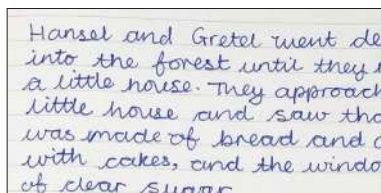 Hansel and Gretel went de
into the forest until they
a little house. They approach
little house and saw tha
was made of bread and
with cakes, and the windo
of clear sugar